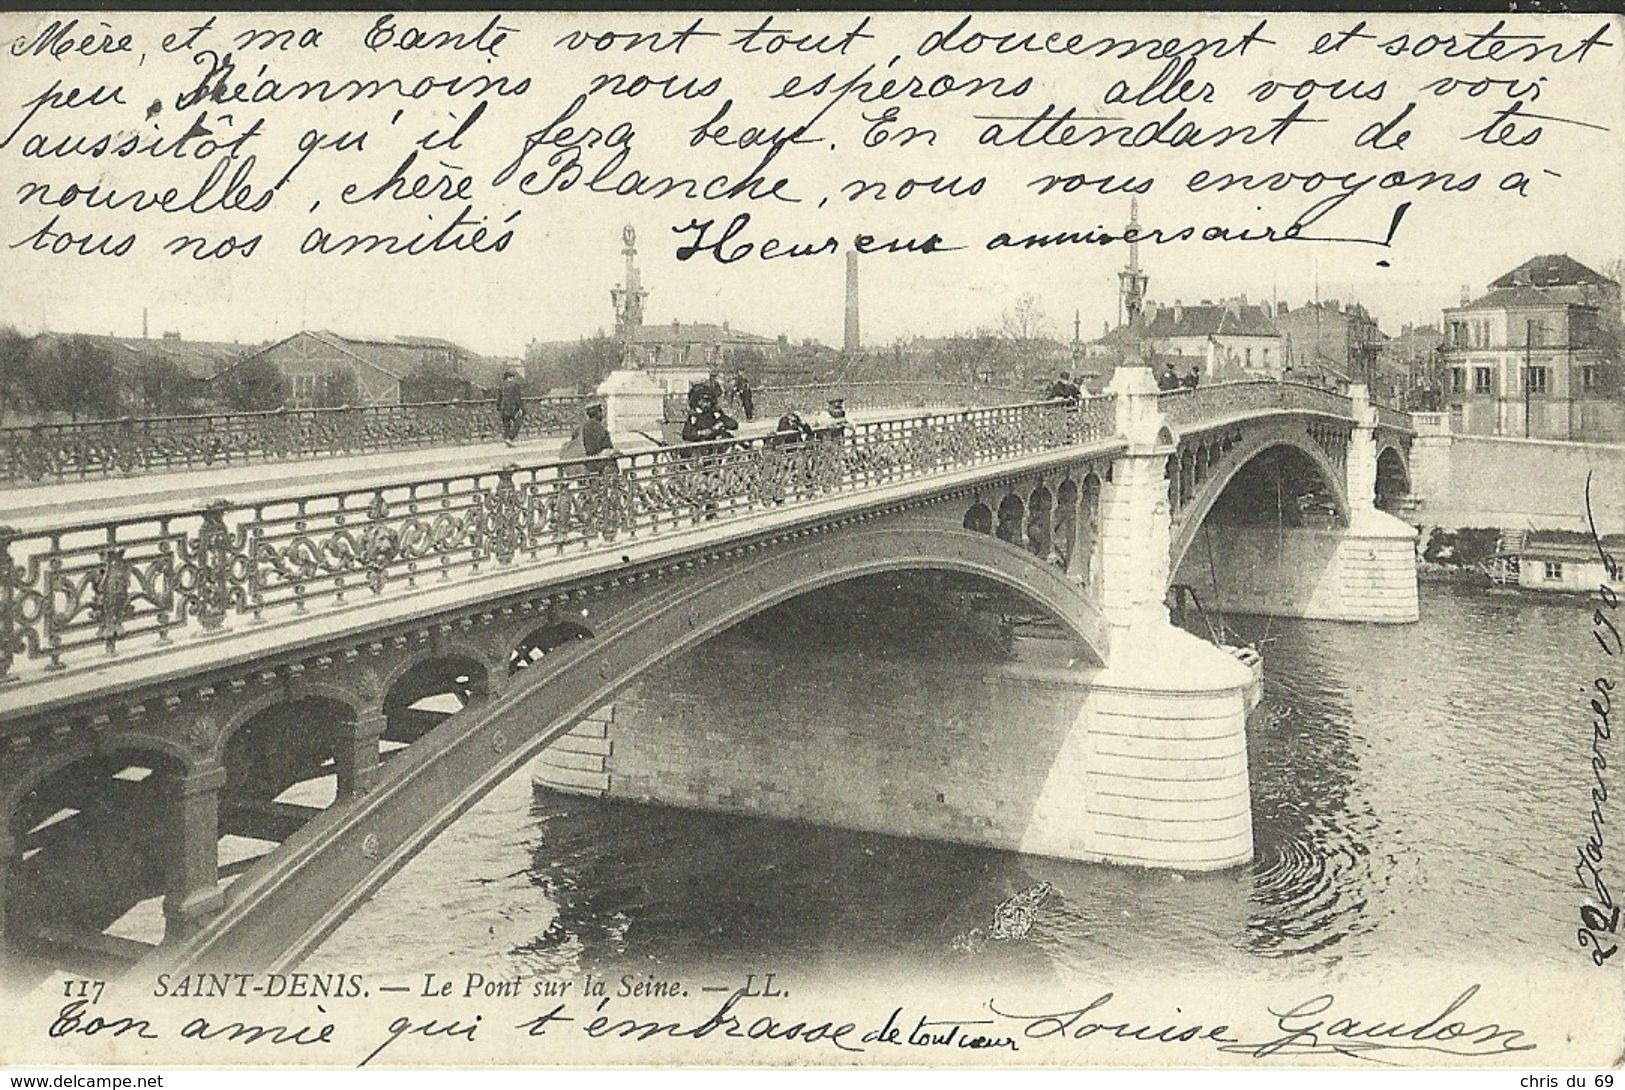 Mère, et ma Tante vont tout doucement et sortent
peu. Néanmoins nous espérons aller vous voir
aussitôt qu'il fera beau. En attendant de tes
nouvelles, chère Blanche, nous vous envoyons à
tous nos amitiés Heureux anniversaire !
20 Janvier 1905
117 SAINT-DENIS. — Le Pont sur la Seine. — LL.
Ton amie qui t'embrasse de tout cœur Louise Gaulon
chris du 69